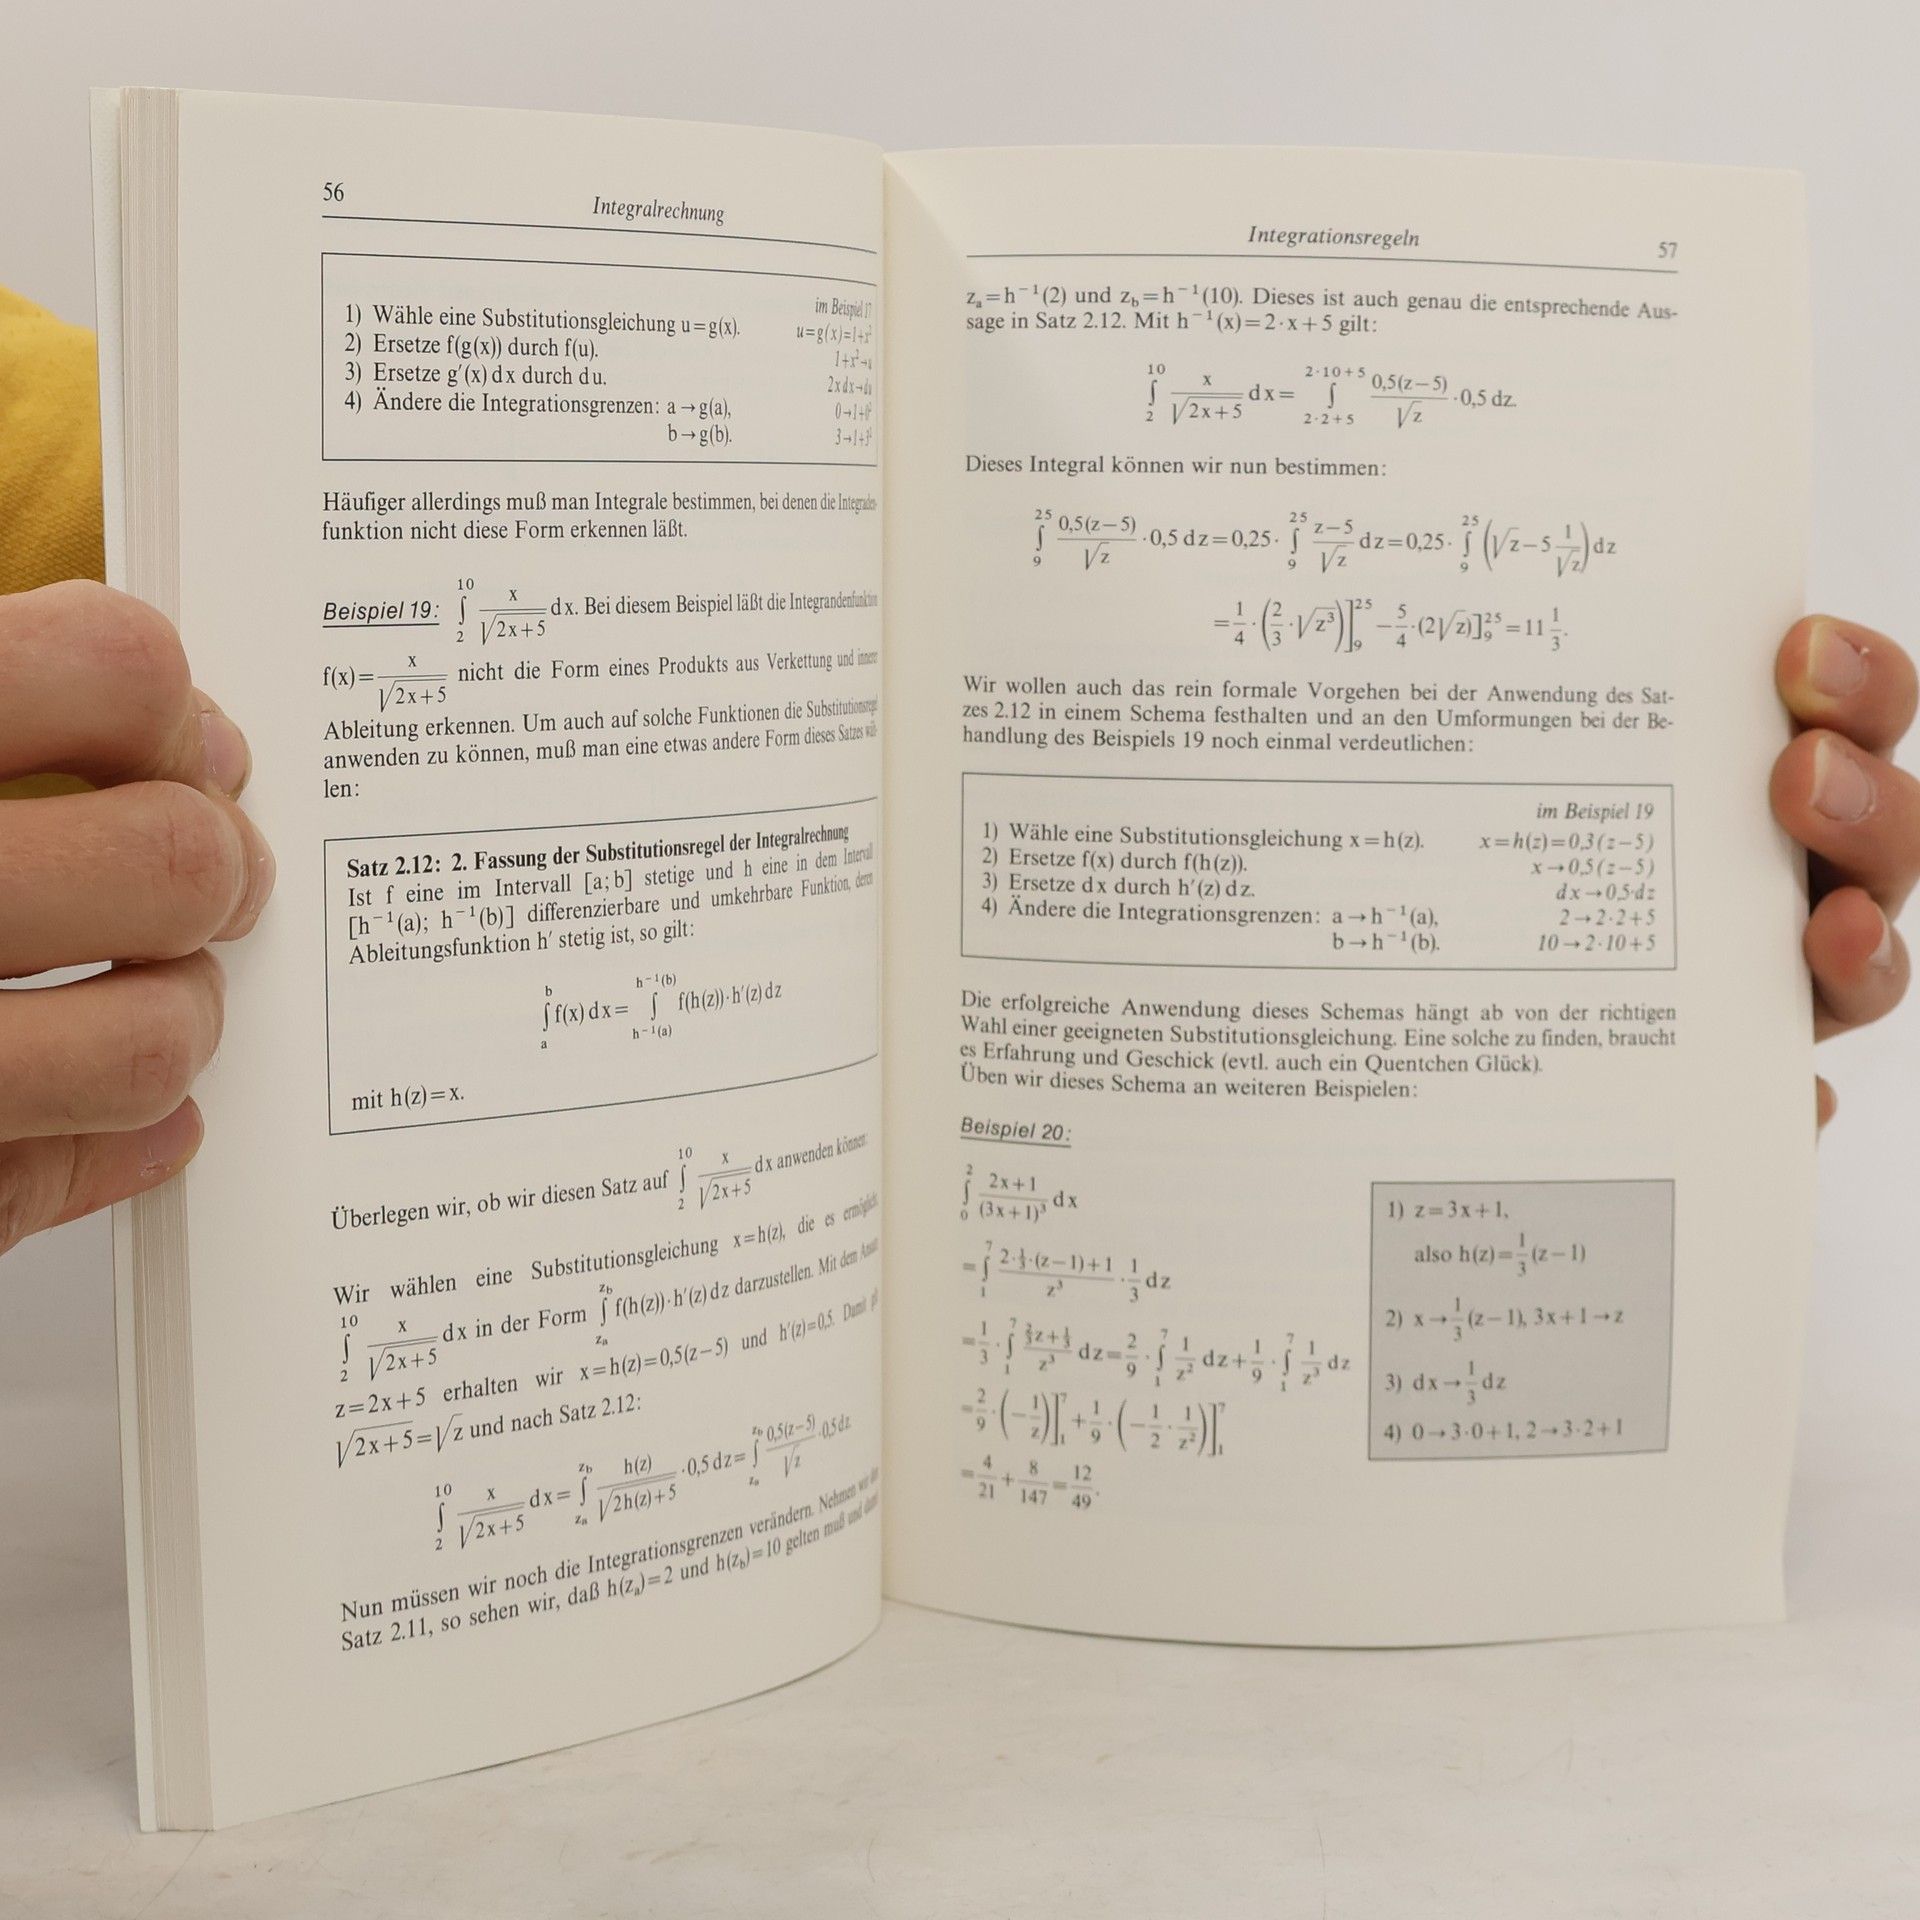 56
Integralrechnung
im Beispiel 17
1) Wähle eine Substitutionsgleichung u=g(x). u=g(x)=1+x²
2) Ersetze f(g(x)) durch f(u). 1+x²→u
3) Ersetze g′(x) dx durch du. 2x dx→du
4) Ändere die Integrationsgrenzen: a→g(a), 0→1+0²
b→g(b). 3→1+3²
Häufiger allerdings muß man Integrale bestimmen, bei denen die Integranden-
funktion nicht diese Form erkennen läßt.
Beispiel 19: ∫₂¹⁰ x/√(2x+5) dx. Bei diesem Beispiel läßt die Integrandenfunktion
f(x)= x/√(2x+5) nicht die Form eines Produkts aus Verkettung und innerer
Ableitung erkennen. Um auch auf solche Funktionen die Substitutionsregel
anwenden zu können, muß man eine etwas andere Form dieses Satzes wäh-
len:
Satz 2.12: 2. Fassung der Substitutionsregel der Integralrechnung
Ist f eine im Intervall [a; b] stetige und h eine in dem Intervall
[h⁻¹(a); h⁻¹(b)] differenzierbare und umkehrbare Funktion, deren
Ableitungsfunktion h′ stetig ist, so gilt:
∫ₐᵇ f(x) dx = ∫_{h⁻¹(a)}^{h⁻¹(b)} f(h(z))·h′(z) dz
mit h(z)=x.
Überlegen wir, ob wir diesen Satz auf ∫₂¹⁰ x/√(2x+5) dx anwenden können:
Wir wählen eine Substitutionsgleichung x=h(z), die es ermöglicht
∫₂¹⁰ x/√(2x+5) dx in der Form ∫_{zₐ}^{z_b} f(h(z))·h′(z) dz darzustellen. Mit dem Ansatz
z=2x+5 erhalten wir x=h(z)=0,5(z−5) und h′(z)=0,5. Damit gilt
√(2x+5)=√z und nach Satz 2.12:
∫₂¹⁰ x/√(2x+5) dx = ∫_{zₐ}^{z_b} h(z)/√(2h(z)+5) ·0,5 dz = ∫_{zₐ}^{z_b} 0,5(z−5)/√z ·0,5 dz
Nun müssen wir noch die Integrationsgrenzen verändern. Nehmen wir
Satz 2.11, so sehen wir, daß h(zₐ)=2 und h(z_b)=10 gelten muß und damit
Integrationsregeln
57
zₐ=h⁻¹(2) und z_b=h⁻¹(10). Dieses ist auch genau die entsprechende Aus-
sage in Satz 2.12. Mit h⁻¹(x)=2·x+5 gilt:
∫₂¹⁰ x/√(2x+5) dx = ∫_{2·2+5}^{2·10+5} 0,5(z−5)/√z ·0,5 dz.
Dieses Integral können wir nun bestimmen:
∫₉²⁵ 0,5(z−5)/√z ·0,5 dz=0,25· ∫₉²⁵ (z−5)/√z dz=0,25· ∫₉²⁵ (√z−5 1/√z) dz
= 1/4 · (2/3 · √z³)]₉²⁵ − 5/4 ·(2√z)]₉²⁵ = 11 1/3.
Wir wollen auch das rein formale Vorgehen bei der Anwendung des Sat-
zes 2.12 in einem Schema festhalten und an den Umformungen bei der Be-
handlung des Beispiels 19 noch einmal verdeutlichen:
im Beispiel 19
1) Wähle eine Substitutionsgleichung x=h(z). x=h(z)=0,3(z−5)
2) Ersetze f(x) durch f(h(z)). x→0,5(z−5)
3) Ersetze dx durch h′(z) dz. dx→0,5·dz
4) Ändere die Integrationsgrenzen: a→h⁻¹(a), 2→2·2+5
b→h⁻¹(b). 10→2·10+5
Die erfolgreiche Anwendung dieses Schemas hängt ab von der richtigen
Wahl einer geeigneten Substitutionsgleichung. Eine solche zu finden, braucht
es Erfahrung und Geschick (evtl. auch ein Quentchen Glück).
Üben wir dieses Schema an weiteren Beispielen:
Beispiel 20:
∫₀² (2x+1)/(3x+1)³ dx
= ∫₁⁷ (2·1/3·(z−1)+1)/z³ · 1/3 dz
= 1/3 · ∫₁⁷ (2/3 z + 1/3)/z³ dz = 2/9 · ∫₁⁷ 1/z² dz + 1/9 · ∫₁⁷ 1/z³ dz
= 2/9 · (−1/z)]₁⁷ + 1/9 · (−1/2 · 1/z²)]₁⁷
= 4/21 + 8/147 = 12/49.
1) z=3x+1,
also h(z)= 1/3 (z−1)
2) x→ 1/3 (z−1), 3x+1→z
3) dx→ 1/3 dz
4) 0→3·0+1, 2→3·2+1